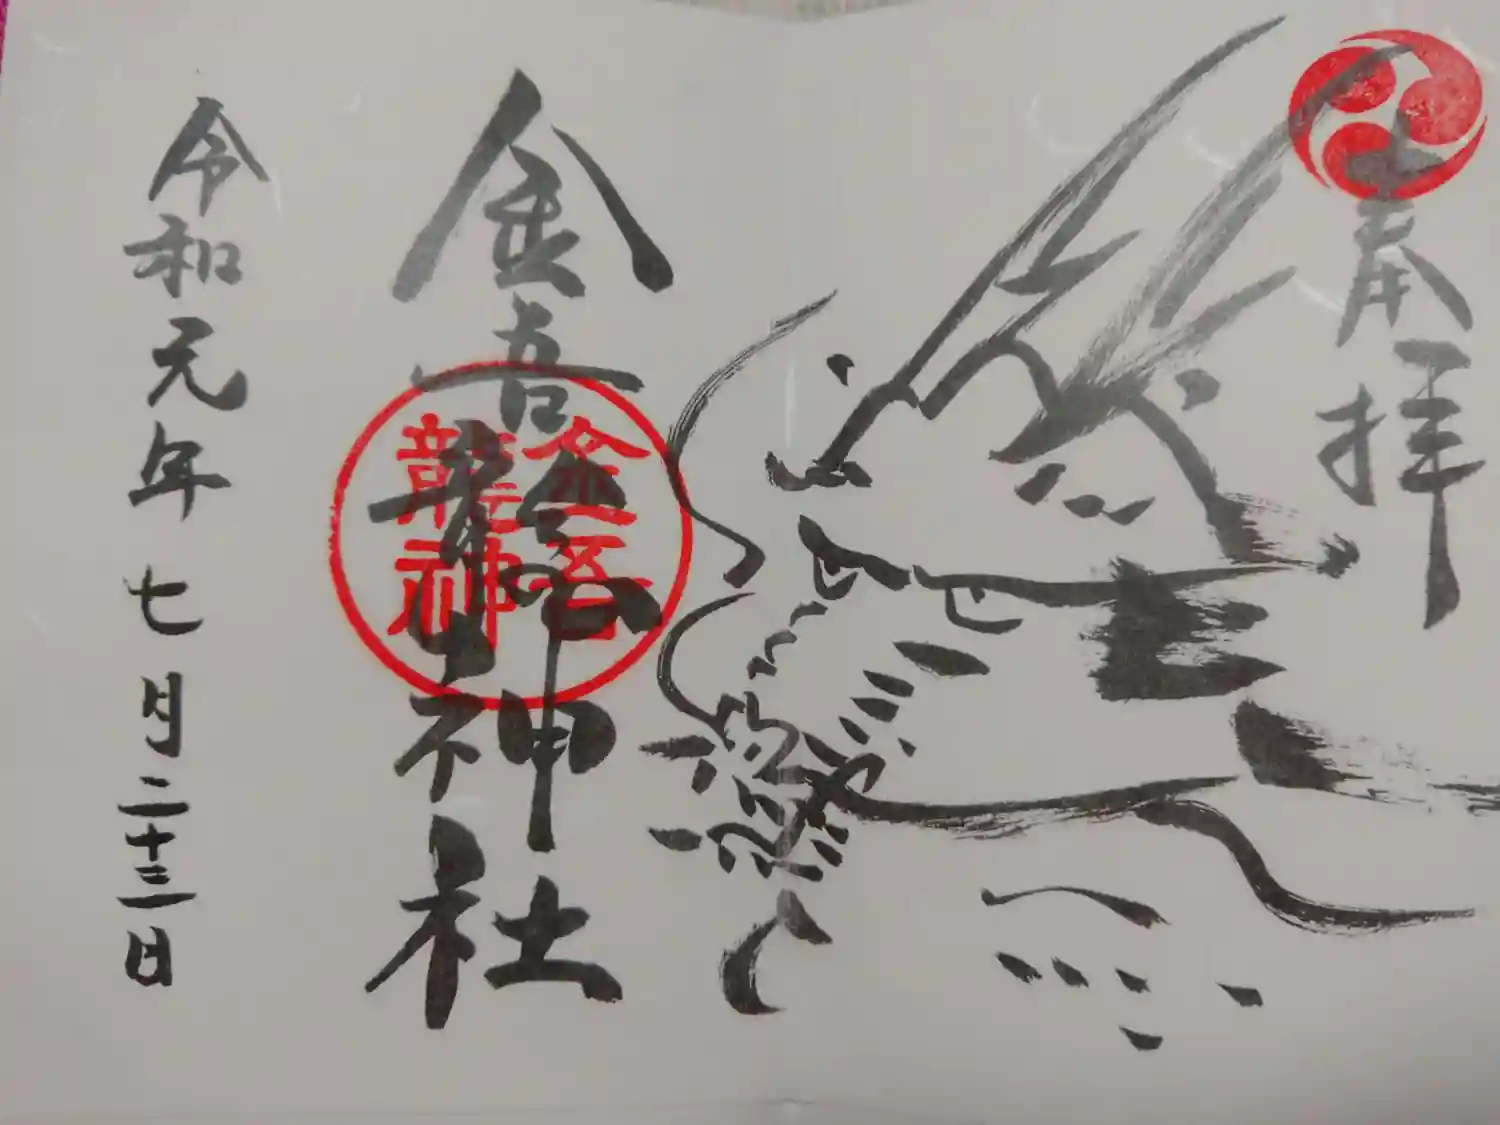 奉拝
金吾龍神社
金吾
龍神
令和元年七月二十三日